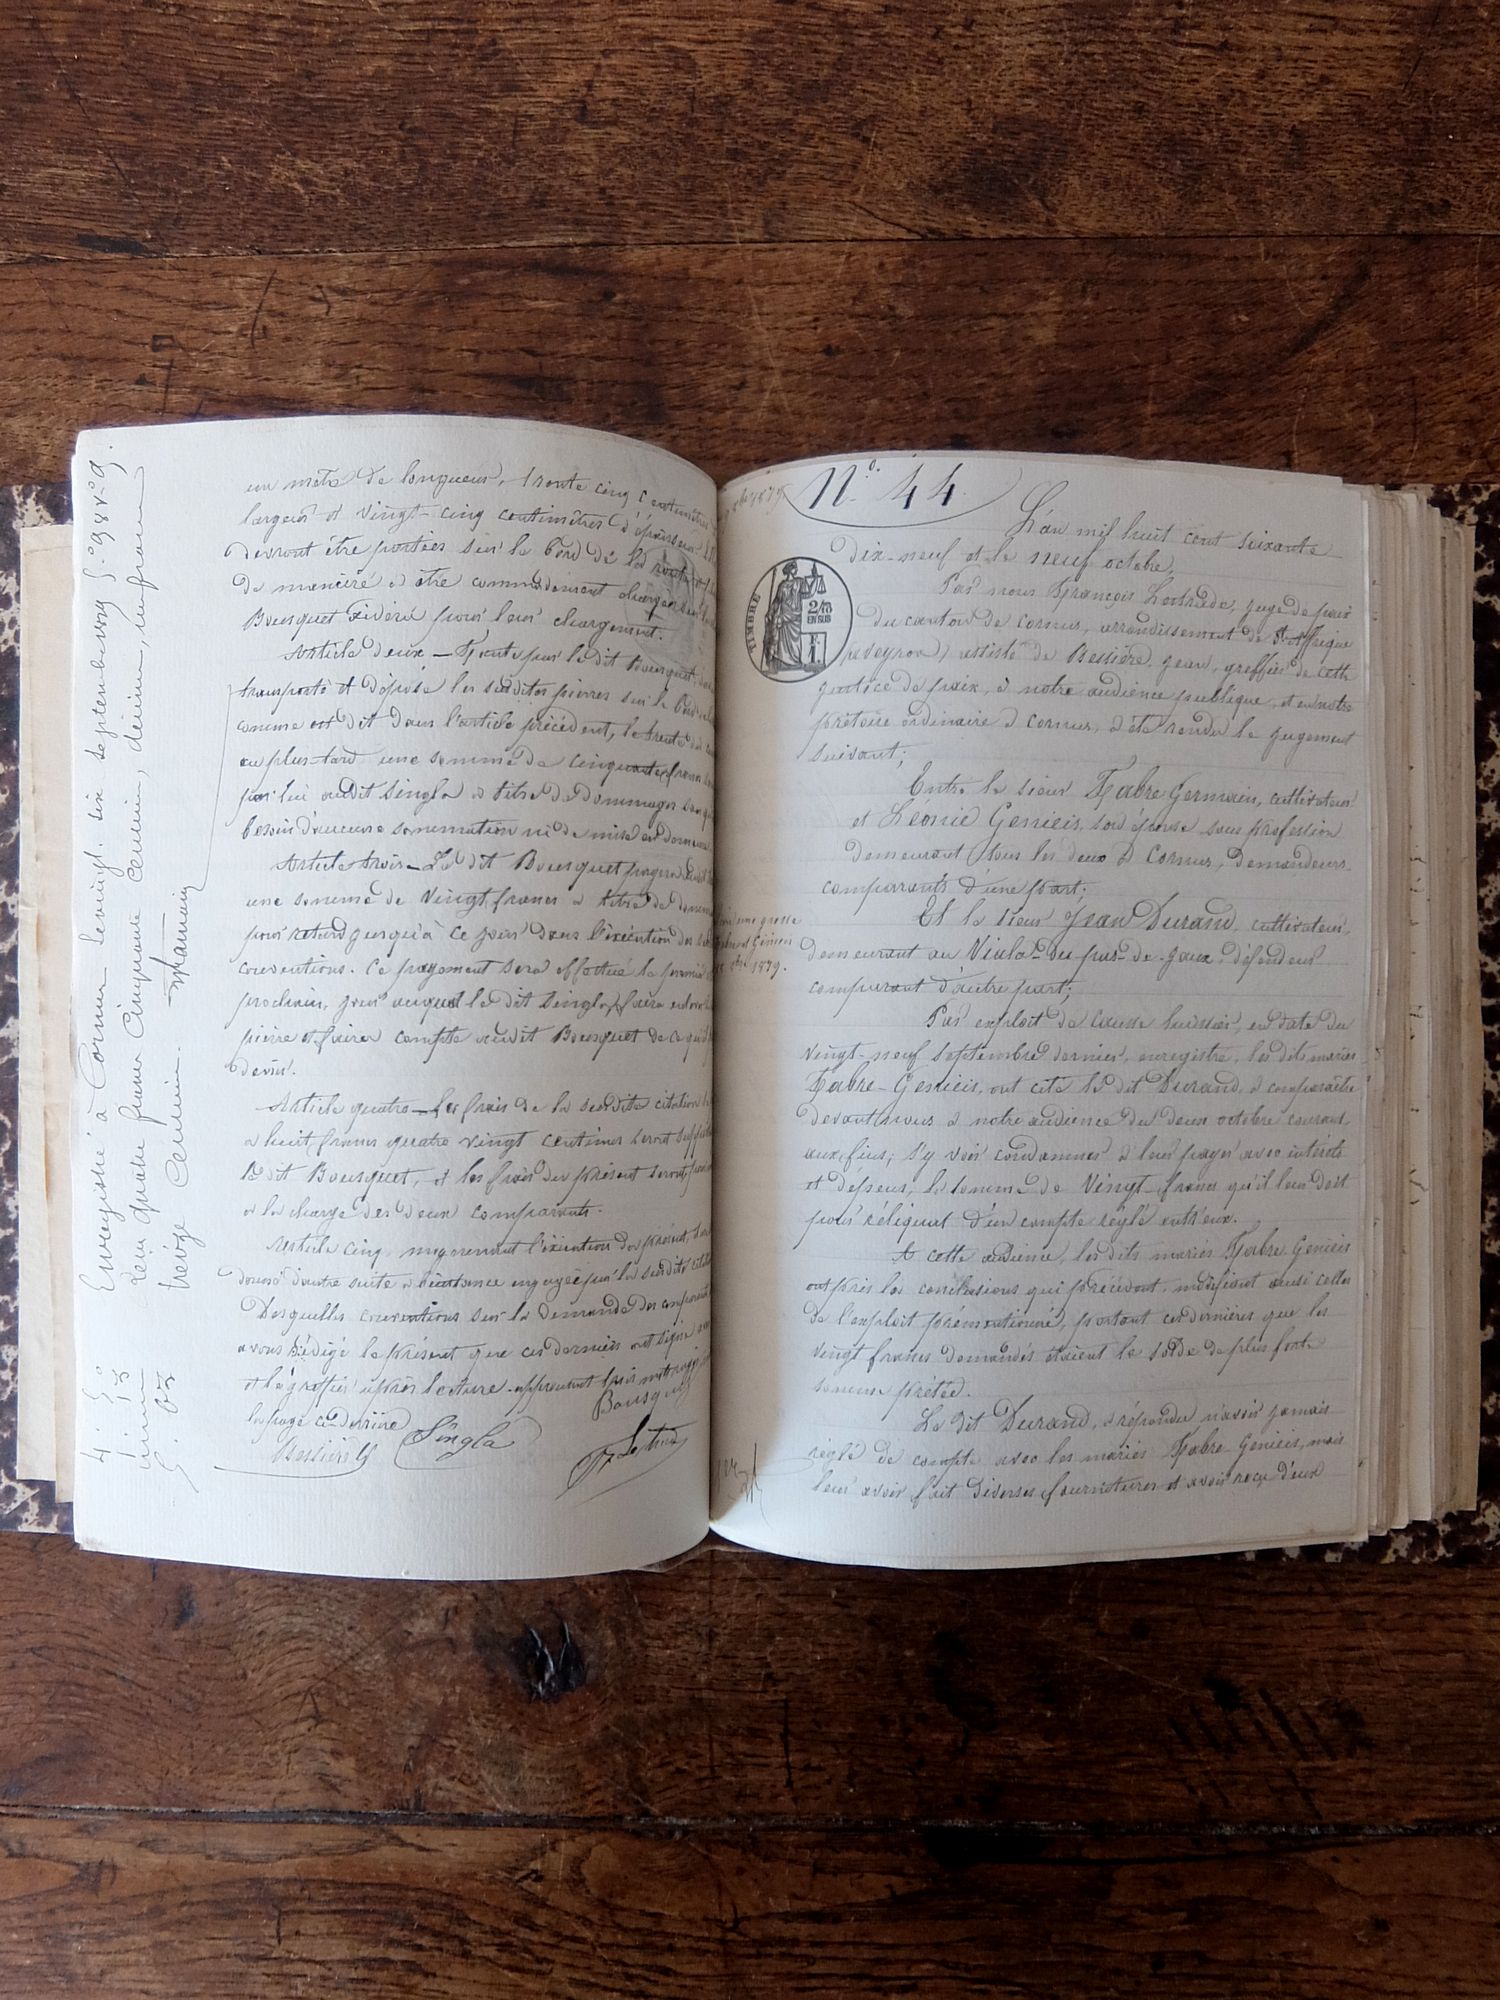 un mètre de longueur, trente cinq centimètres
largeur et vingt-cinq centimètres d'épaisseur
devront être portées sur le bord de la route
de manière à être commodément chargées
Bousquet pour leur chargement.
Article deux — Faute par le dit Bousquet
transporté et déposé les susdites pierres sur le bord
comme est dit dans l'article précédent, le trente
au plus tard une somme de cinquante francs
par lui audit Singla à titre de dommages sans
besoin d'aucune sommation ni de mise en demeure
Article trois — Le dit Bousquet payera
une somme de vingt francs à titre de
pour retard jusqu'à ce jour dans l'exécution des
conventions. Ce payement sera effectué le premier
prochain, jour auquel le dit Singla
pierre et faire compte audit Bousquet de ce qu'il
devoir.
Article quatre — Les frais de la susdite citation
à huit francs quatre vingt centimes seront
le dit Bousquet, et les frais du présent seront
à la charge des deux comparants.
Article cinq, moyennant l'exécution du présent,
donné d'autre suite à l'instance engagée par la susdite
Desquelles conventions sur la demande des comparants
avons rédigé le présent que ces derniers ont signé
et le greffier après lecture. approuvant trois mots rayés
la page ci-derrière
Bousquet
Singla
Bessière
Enregistré à Cornus le vingt six septembre 1879 f° 98 v° c 9.
Reçu quatre francs cinquante centimes, décimes, un franc
treize centimes.
2/10
EN SUS
TIMBRE
F.
1.
N° 44
L'an mil huit cent soixante
dix-neuf et le neuf octobre,
Par nous François Lestrade, juge de paix
du canton de Cornus, arrondissement de St Affrique
(Aveyron) assisté de Bessière Jean, greffier de cette
justice de paix, à notre audience publique, et en notre
prétoire ordinaire à Cornus, a été rendu le jugement
suivant;
Entre le sieur Fabre Germain, cultivateur
et Léonie Genieis, son épouse sans profession
demeurant tous les deux à Cornus, demandeurs
comparants d'une part;
Et le sieur Jean Durand, cultivateur,
demeurant au Viala-du-pas-de-Jaux, défendeur
comparant d'autre part;
Par exploit de Causse huissier, en date du
vingt-neuf septembre dernier, enregistré, les dits mariés
Fabre-Genieis, ont cité le dit Durand, à comparaître
devant nous à notre audience du deux octobre courant,
aux fins, s'y voir condamner à leur payer avec intérêts
et dépens, la somme de vingt francs qu'il leur doit
pour réliquat d'un compte réglé entr'eux.
A cette audience, les dits mariés Fabre Genieis
ont pris les conclusions qui précèdent, modifiant ainsi celles
de l'exploit prémentionné, portant ces dernières que les
vingt francs demandés étaient le solde de plus forte
somme prêtée.
Le dit Durand, a répondu n'avoir jamais
réglé de compte avec les mariés Fabre-Genieis, mais
leur avoir fait diverses fournitures et avoir reçu d'eux
une grosse
Genieis
1879.